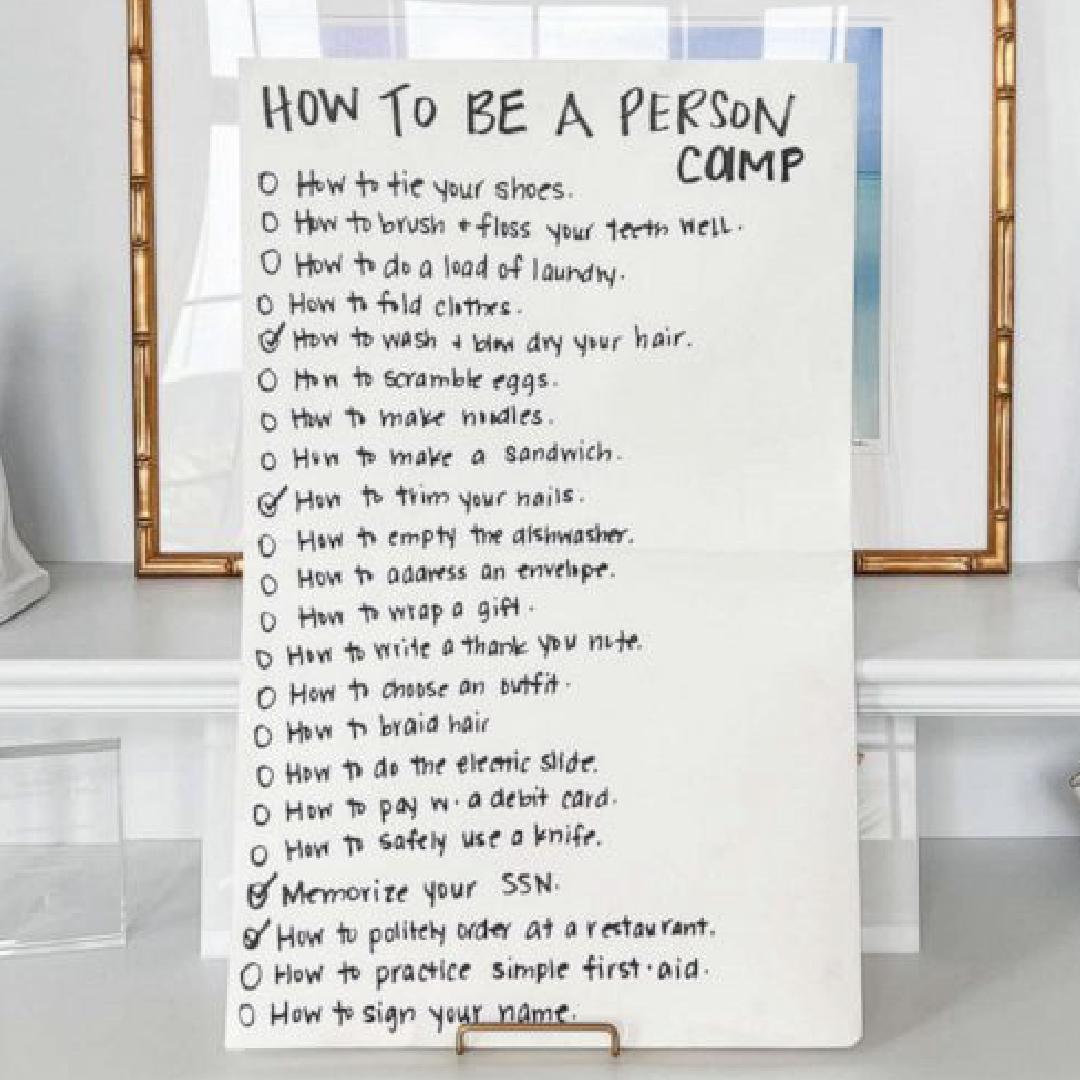 HOW TO BE A PERSON
CAMP
How to tie your shoes.
How to brush + floss your teeth well.
How to do a load of laundry.
How to fold clothes.
How to wash + blow dry your hair.
How to scramble eggs.
How to make noodles.
How to make a sandwich.
How to trim your nails.
How to empty the dishwasher.
How to address an envelope.
How to wrap a gift.
How to write a thank you note.
How to choose an outfit.
How to braid hair
How to do the electric slide.
How to pay w. a debit card.
How to safely use a knife.
Memorize your SSN.
How to politely order at a restaurant.
How to practice simple first-aid.
How to sign your name.